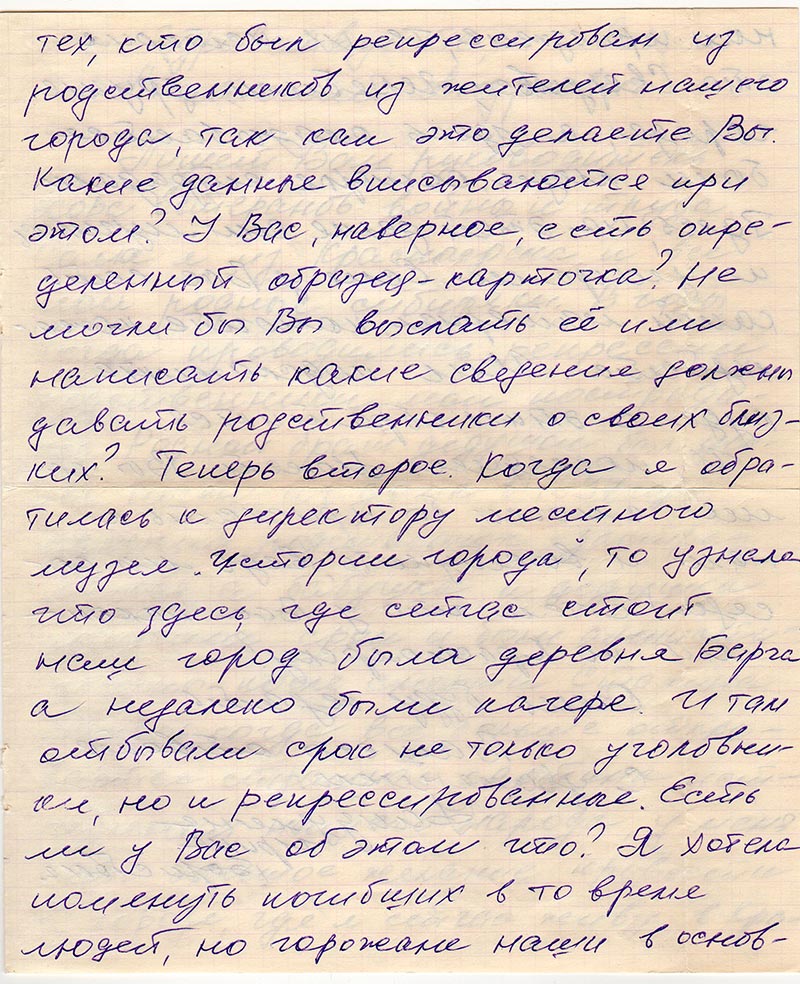 тех, кто был репрессирован из
родственников из жителей нашего
города, так как это делаете Вы.
Какие данные вписываются при
этом? У Вас, наверное, есть опре-
деленный образец-карточка? Не
могли бы Вы выслать её или
написать какие сведения должны
давать родственники о своих близ-
ких? Теперь второе. Когда я обра-
тилась к директору местного
музея "Истории города", то узнала
что здесь, где сейчас стоит
наш город была деревня Барга
а недалеко были лагеря. И там
отбывали срок не только уголовни-
ки, но и репрессированные. Есть
ли у Вас об этом что? Я хотела
помянуть погибших в то время
людей, но горожане наши в основ-